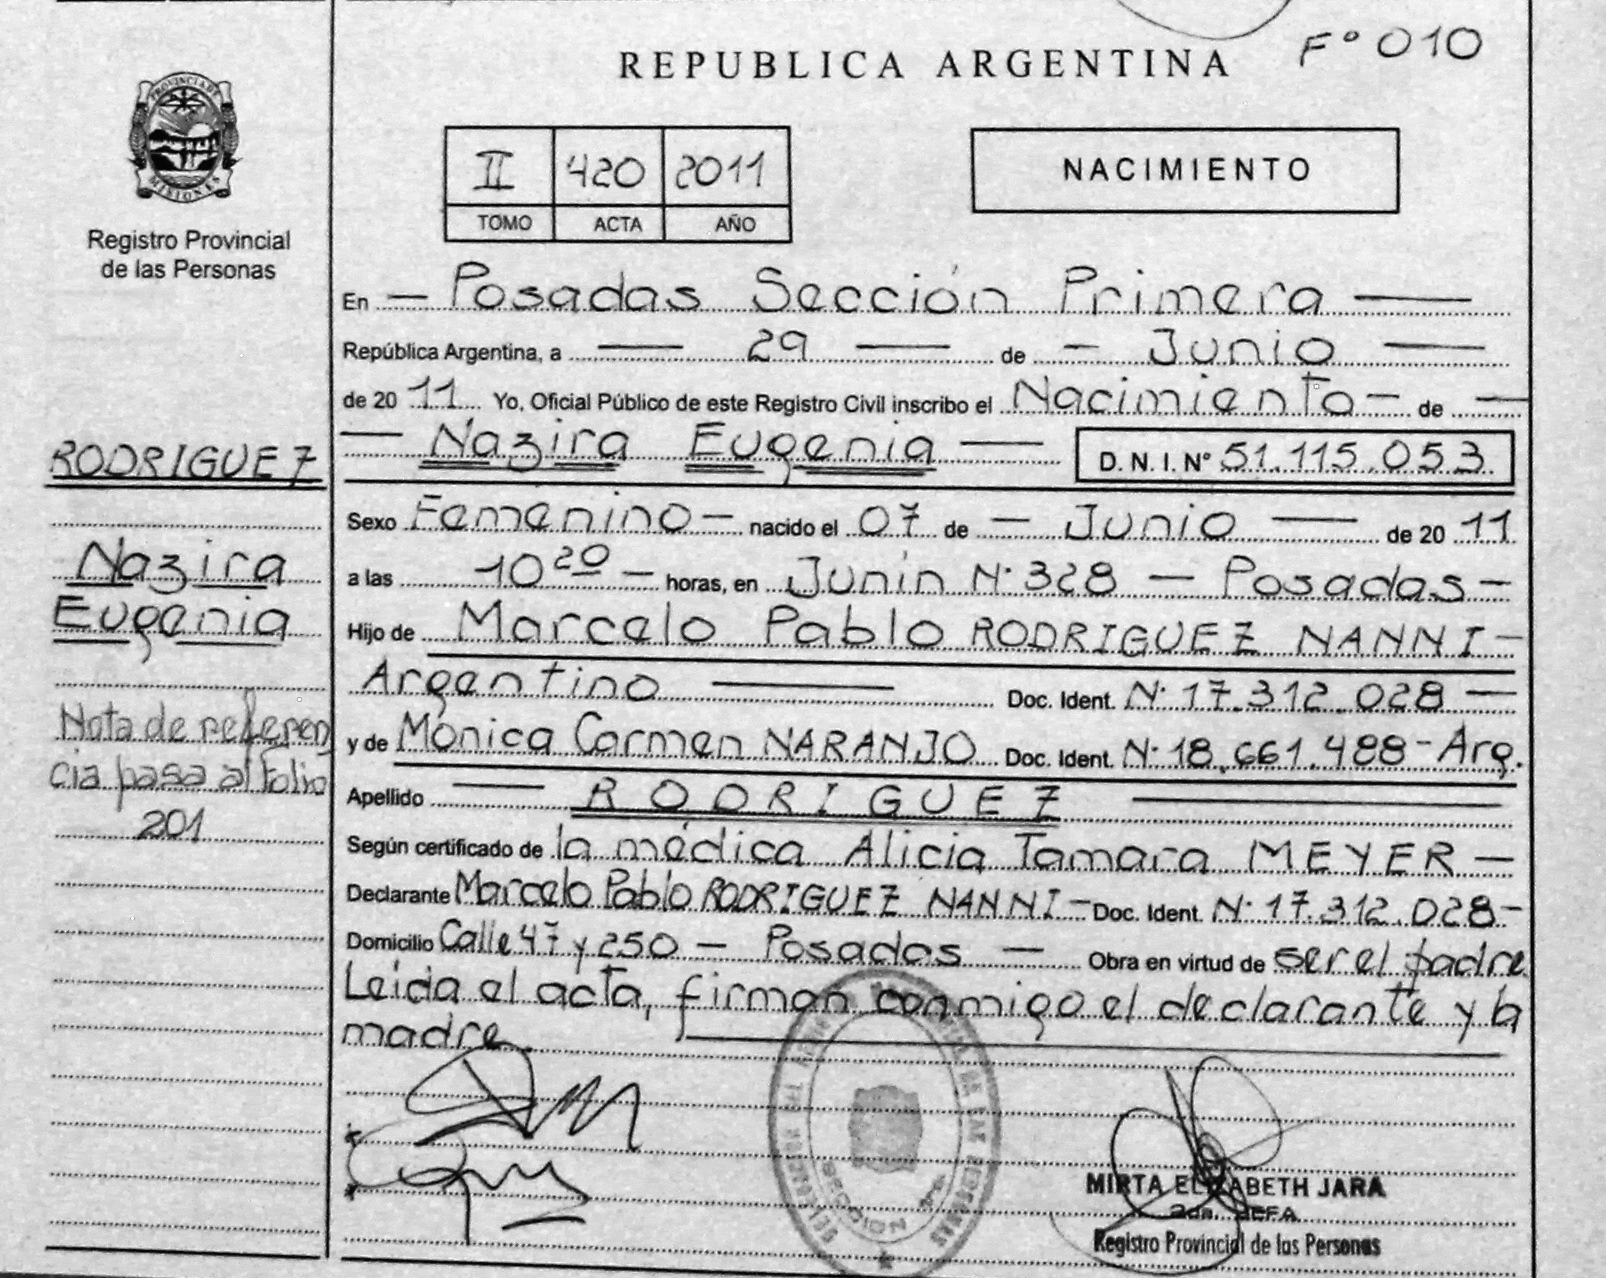 F° 010
REPUBLICA ARGENTINA
PROVINCIA DE
MISIONES
Registro Provincial
de las Personas
II 420 2011
TOMO ACTA AÑO
NACIMIENTO
En — Posadas Sección Primera —
República Argentina, a — 29 — de — Junio —
de 20 11 Yo, Oficial Público de este Registro Civil inscribo el Nacimiento — de —
— Nazira Eugenia — D.N.I. N° 51.115.053
RODRIGUEZ
Sexo Femenino — nacido el 07 de — Junio — de 20 11
Nazira
Eugenia
a las 10 20 — horas, en Junín N° 328 — Posadas —
Hijo de Marcelo Pablo RODRIGUEZ NANNI —
Argentino — Doc. Ident. N° 17.312.028 —
y de Mónica Carmen NARANJO Doc. Ident. N° 18.661.488 - Arg.
Nota de referen
cia pasa al Folio
201
Apellido — RODRIGUEZ —
Según certificado de la médica Alicia Tamara MEYER —
Declarante Marcelo Pablo RODRIGUEZ NANNI — Doc. Ident. N° 17.312.028 -
Domicilio Calle 47 y 250 — Posadas — Obra en virtud de ser el padre
Leida el acta, firman conmigo el declarante y la
madre.
SECCION
MIRTA ELIZABETH JARA
2da. JEFA
Registro Provincial de las Personas